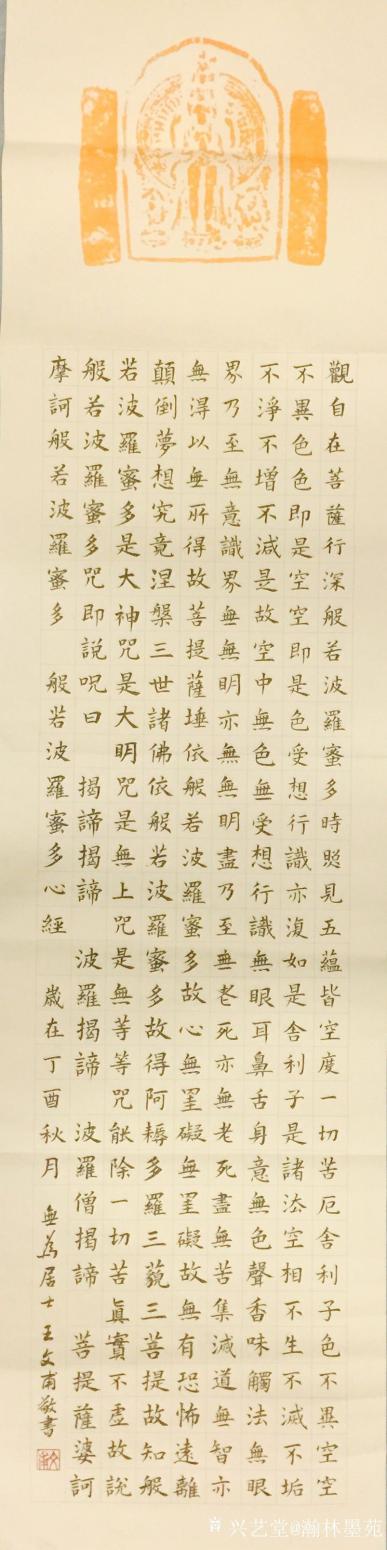 觀自在菩薩行深般若波羅蜜多時照見五蘊皆空度一切苦厄舍利子色不異空空
不異色色即是空空即是色受想行識亦復如是舍利子是諸法空相不生不滅不垢
不淨不增不減是故空中無色無受想行識無眼耳鼻舌身意無色聲香味觸法無眼
界乃至無意識界無無明亦無無明盡乃至無老死亦無老死盡無苦集滅道無智亦
無得以無所得故菩提薩埵依般若波羅蜜多故心無罣礙無罣礙故無有恐怖遠離
顛倒夢想究竟涅槃三世諸佛依般若波羅蜜多故得阿耨多羅三藐三菩提故知般
若波羅蜜多是大神咒是大明咒是無上咒是無等等咒能除一切苦真實不虛故說
般若波羅蜜多咒即說呪曰 揭諦揭諦 波羅揭諦 波羅僧揭諦 菩提薩婆訶
摩訶般若波羅蜜多 般若波羅蜜多心經 歲在丁酉秋月 無為居士王文甫敬書
兴艺堂@瀚林墨苑